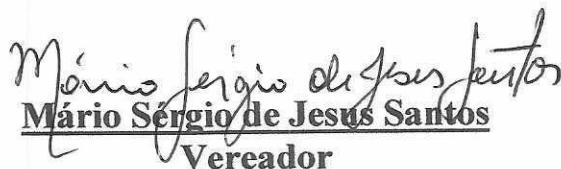 Mário Sérgio de Jesus Santos
Mário Sérgio de Jesus Santos
Vereador